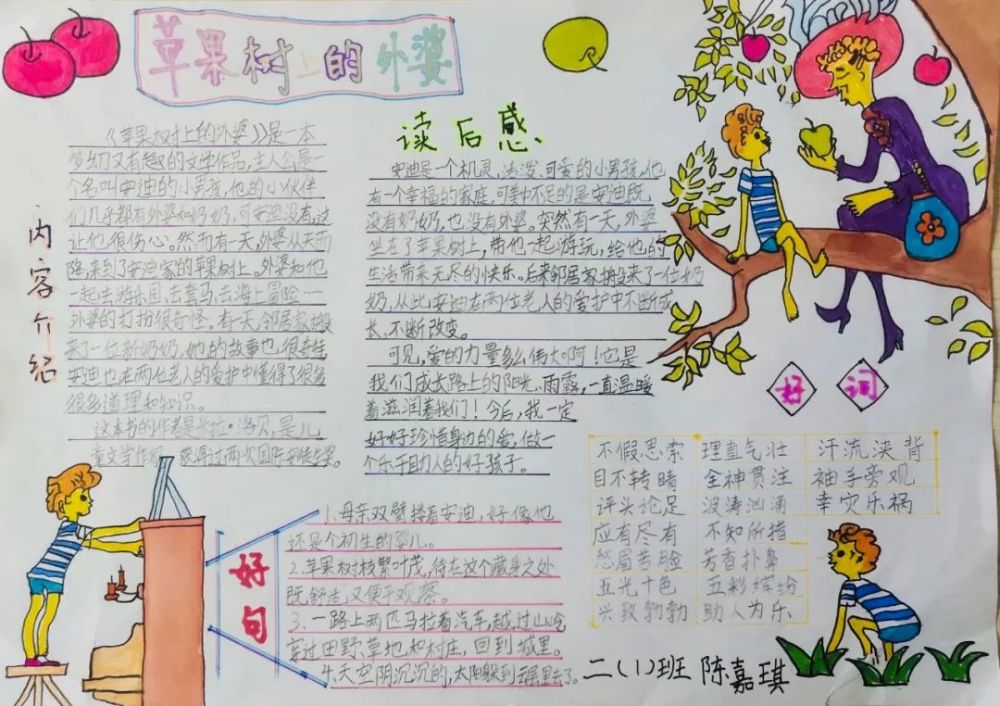 苹果树上的外婆
内容介绍
《苹果树上的外婆》是一本
梦幻又有趣的文学作品,主人公是一
个名叫安迪的小男孩,他的小伙伴
们几乎都有外婆和奶奶,可安迪没有,这
让他很伤心。然而有一天,外婆从天而
降,来到了安迪家的苹果树上。外婆和他
一起去游乐园、去套马、去海上冒险……
外婆的打扮很奇怪。有一天,邻居家搬
来了一位新奶奶,她的故事也很奇怪,
安迪也在两位老人的爱护中懂得了很多
很多道理和知识。
这本书的作者是米拉·洛贝,是儿
童文学作家,获得过两次国际安徒生奖。
读后感
安迪是一个机灵、活泼、可爱的小男孩,他
有一个幸福的家庭,可美中不足的是安迪既
没有奶奶,也没有外婆。突然有一天,外婆
坐在了苹果树上,带他一起游玩,给他的
生活带来无尽的快乐。后来邻居家搬来了一位奶
奶,从此安迪在两位老人的爱护中不断成
长、不断改变。
可见,爱的力量多么伟大啊!它是
我们成长路上的阳光、雨露,一直温暖
着滋润着我们!今后,我一定
好好珍惜身边的爱,做一
个乐于助人的好孩子。
好句
1.母亲双臂搂着安迪,好像他
还是个初生的婴儿。
2.苹果树枝繁叶茂,待在这个藏身之处
既舒适,又便于观察。
3.一路上两匹马拉着汽车,越过山岭
穿过田野草地和村庄,回到城里。
4.天空阴沉沉的,太阳躲到云层里去了。
好词
不假思索 理直气壮 汗流浃背
目不转睛 全神贯注 袖手旁观
评头论足 波涛汹涌 幸灾乐祸
应有尽有 不知所措
愁眉苦脸 芳香扑鼻
五光十色 五彩缤纷
兴致勃勃 助人为乐
二(1)班 陈嘉琪